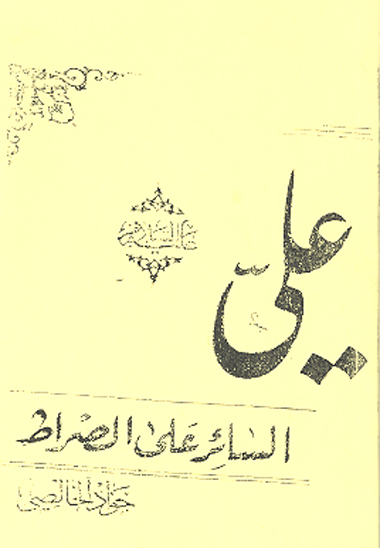 عليّ
عليه السلام
السائر على الصراط
جواد الخالصي